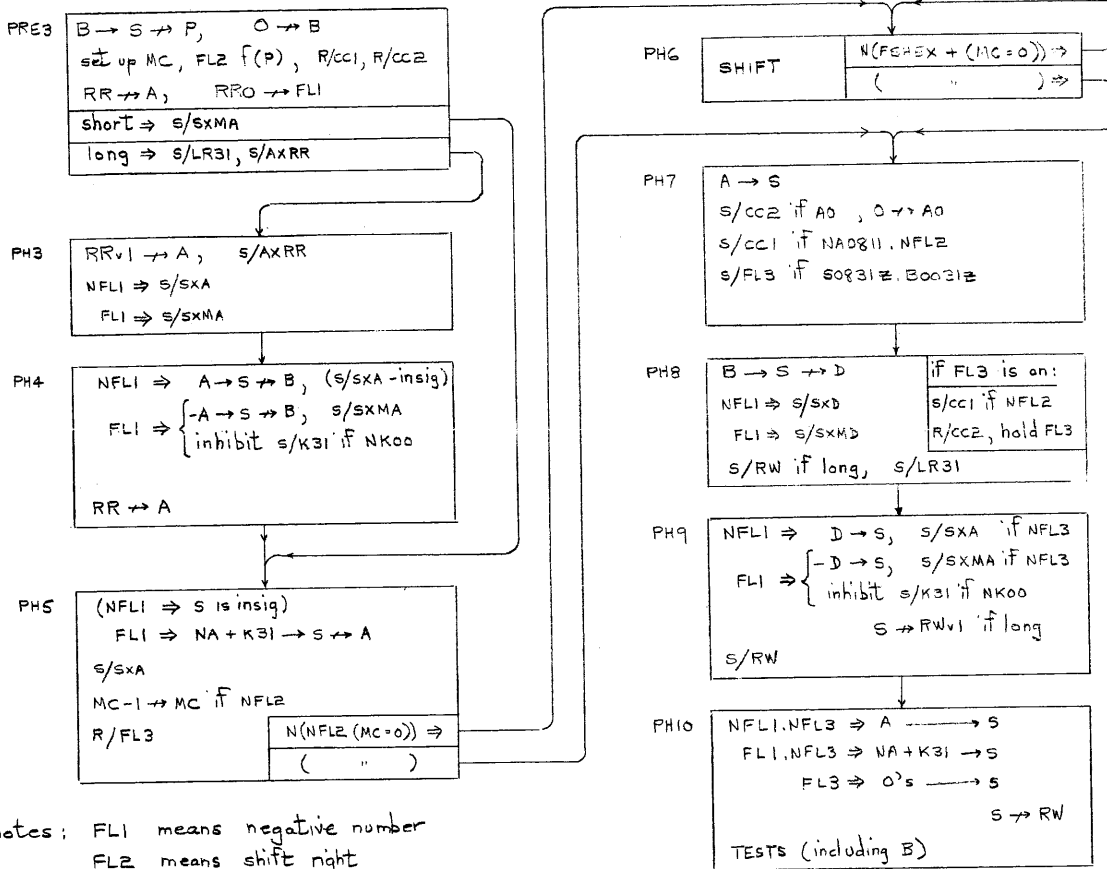 PRE3
B → S ↛ P, O ↛ B
set up MC, FL2 f(P), R/CC1, R/CC2
RR ↛ A, RRO ↛ FL1
short ⇒ S/SXMA
long ⇒ S/LR31, S/AXRR
PH3
RRv1 ↛ A, S/AXRR
NFL1 ⇒ S/SXA
FL1 ⇒ S/SXMA
PH4
NFL1 ⇒ A → S ↛ B, (S/SXA - insig)
FL1 ⇒ { -A → S ↛ B, S/SXMA
inhibit S/K31 if NK00
RR ↛ A
PH5
(NFL1 ⇒ S is insig)
FL1 ⇒ NA + K31 → S ↛ A
S/SXA
MC-1 ↛ MC if NFL2
R/FL3
N(NFL2 (MC=0)) ⇒
( " )
notes: FL1 means negative number
FL2 means shift right
PH6
SHIFT
N(FSHEX + (MC=0)) ⇒
( " ) ⇒
PH7
A → S
S/CC2 if A0, O ↛ A0
S/CC1 if NA0811.NFL2
S/FL3 if S0831Z.B0031Z
PH8
B → S ↛ D
NFL1 ⇒ S/SXD
FL1 ⇒ S/SXMD
S/RW if long, S/LR31
if FL3 is on:
S/CC1 if NFL2
R/CC2, hold FL3
PH9
NFL1 ⇒ D → S, S/SXA if NFL3
FL1 ⇒ { -D → S, S/SXMA if NFL3
inhibit S/K31 if NK00
S ↛ RWv1 if long
S/RW
PH10
NFL1.NFL3 ⇒ A → S
FL1.NFL3 ⇒ NA + K31 → S
FL3 ⇒ O's → S
S ↛ RW
TESTS (including B)